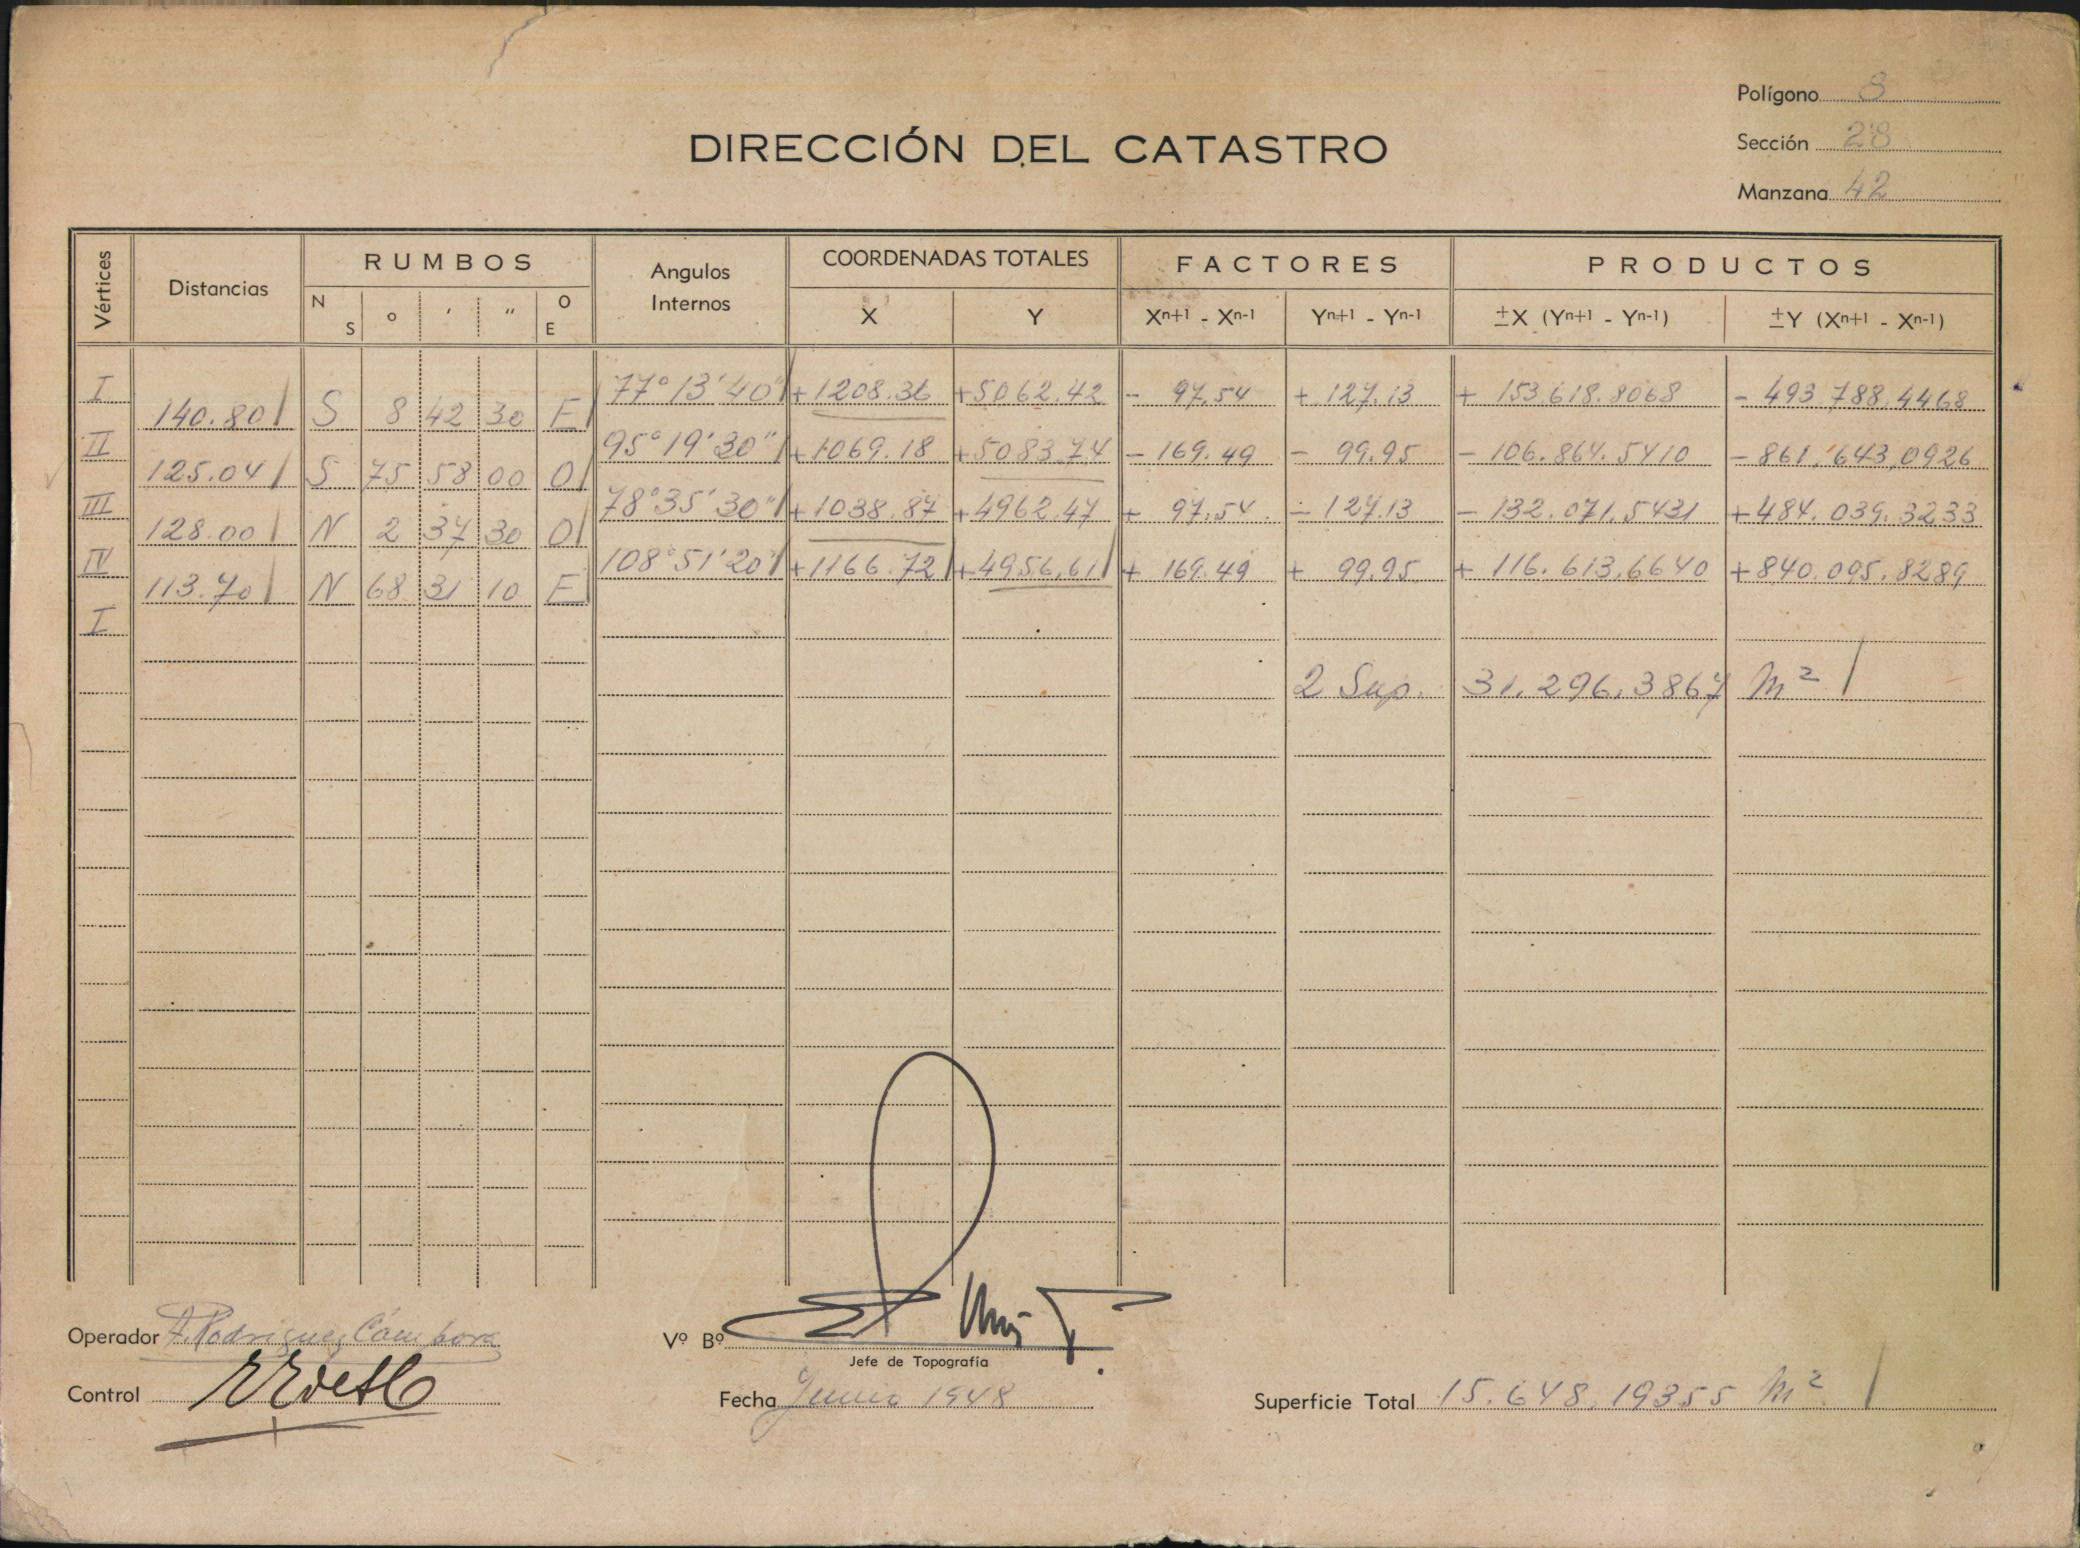 Polígono 8
DIRECCIÓN DEL CATASTRO
Sección 28
Manzana 42
Vértices Distancias RUMBOS Angulos Internos COORDENADAS TOTALES FACTORES PRODUCTOS
N S ° ' " O E X Y Xn+1 - Xn-1 Yn+1 - Yn-1 ±X (Yn+1 - Yn-1) ±Y (Xn+1 - Xn-1)
I 77°13'40" +1208.36 +5062.42 - 97.54 + 127.13 + 153.618.8068 - 493.788.4468
140.80 S 8 42 30 E
II 95°19'30" +1069.18 +5083.74 - 169.49 - 99.95 - 106.864.5410 - 861.643.0926
125.04 S 75 58 00 O
III 78°35'30" +1038.87 +4962.47 + 97.54 - 127.13 - 132.071.5431 + 484.039.3233
128.00 N 2 37 30 O
IV 108°51'20" +1166.72 +4956.61 + 169.49 + 99.95 + 116.613.6640 + 840.095.8289
113.70 N 68 31 10 E
I
2 Sup. 31.296.3867 m²
Operador A. Rodriguez Cámpora
Vº Bº
Jefe de Topografía
Control
Fecha Junio 1948
Superficie Total 15.648.19355 m²